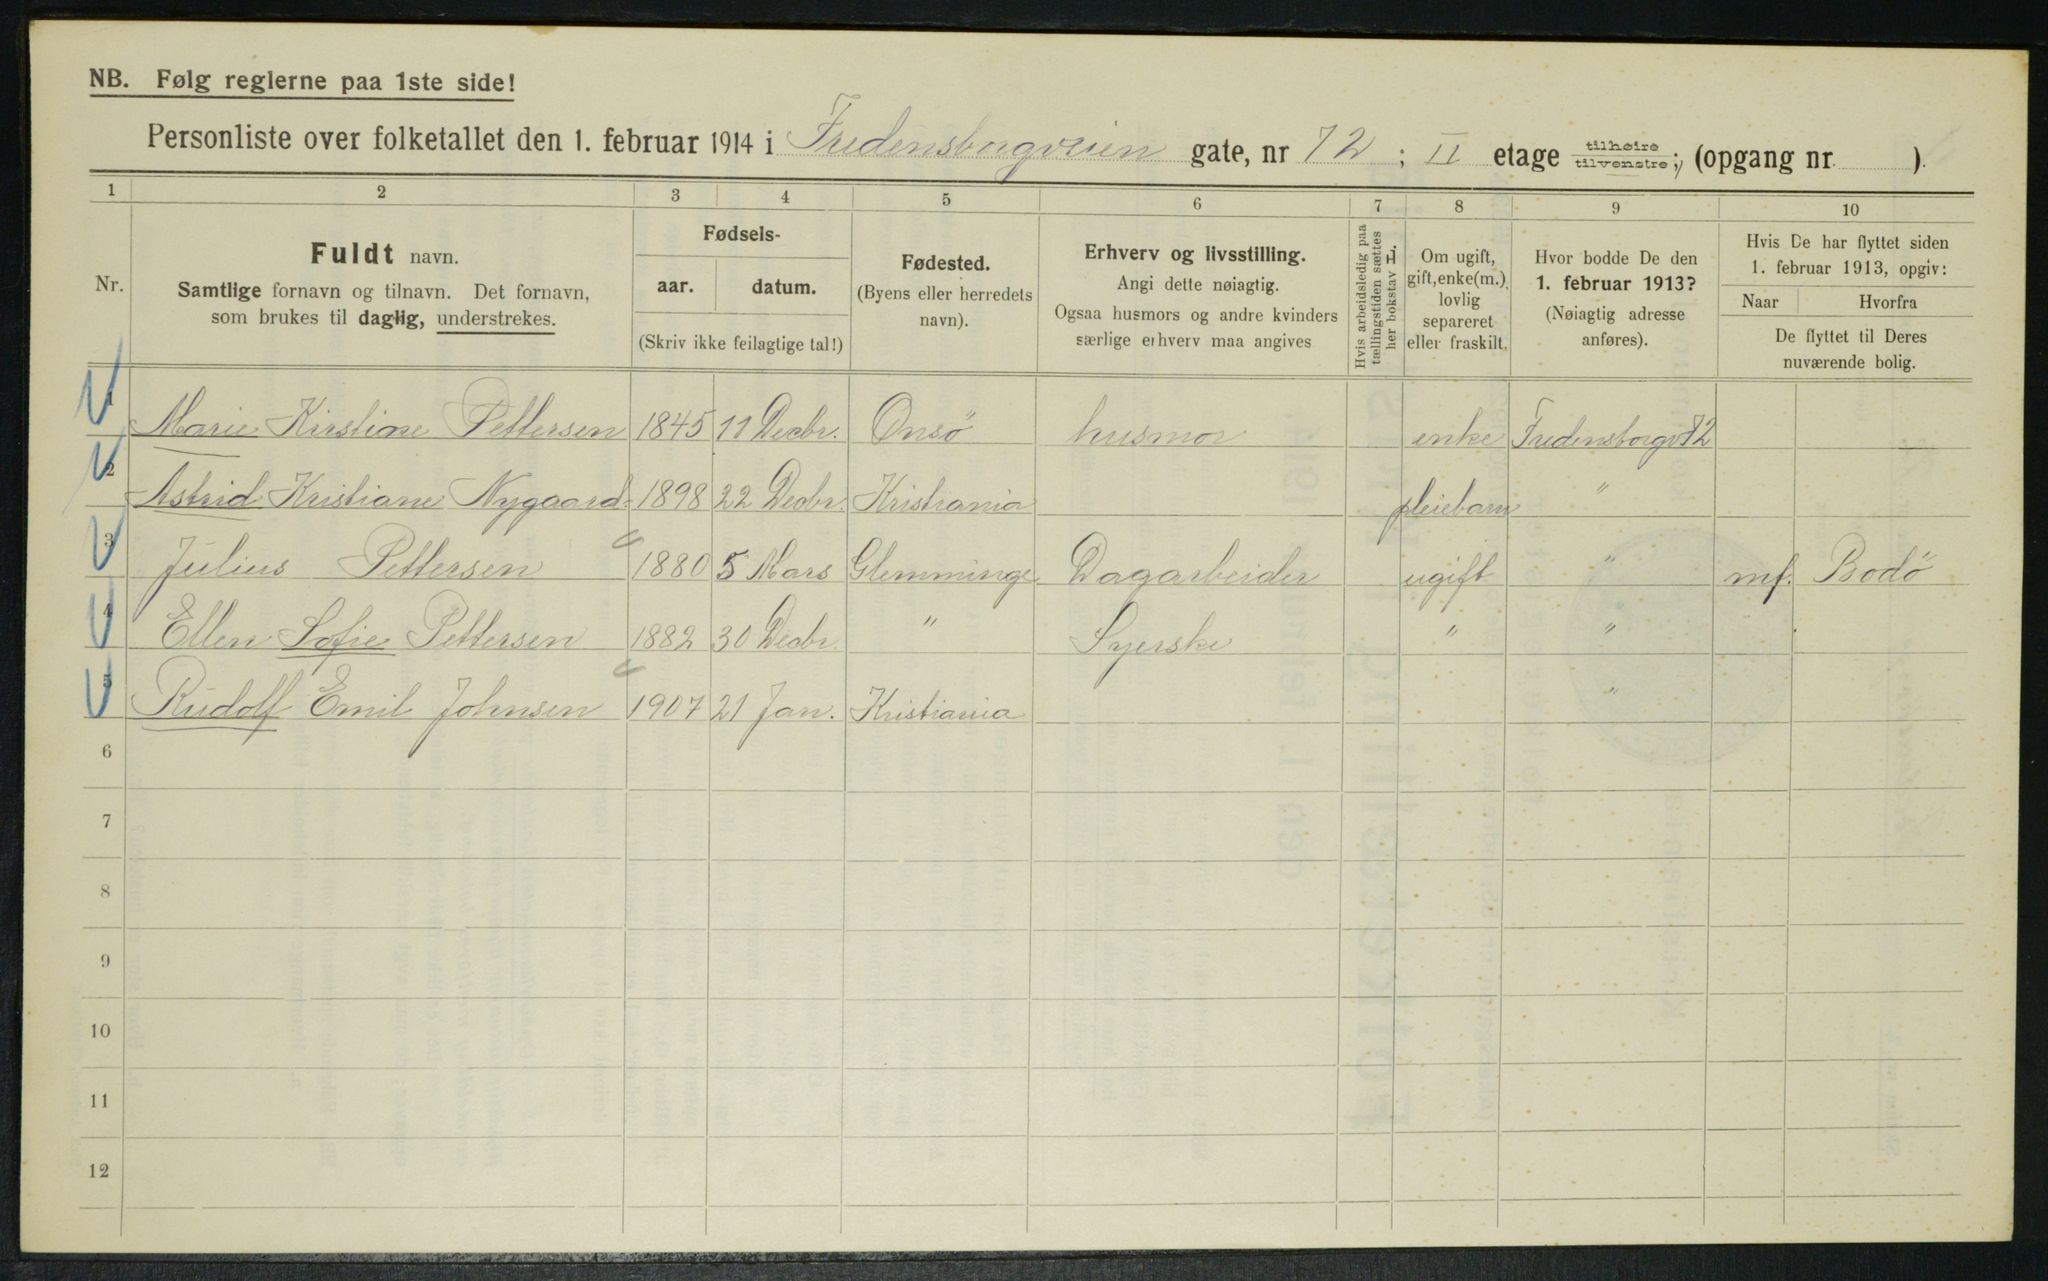 NB. Følg reglerne paa 1ste side!
Personliste over folketallet den 1. februar 1914 i Fredensborgveien gate, nr 72 ; II etage tilhøire tilvenstre ; (opgang nr. ).
1 2 3 4 5 6 7 8 9 10
Nr.
Fuldt navn.
Samtlige fornavn og tilnavn. Det fornavn,
som brukes til daglig, understrekes.
Fødsels-
aar. datum.
(Skriv ikke feilagtige tal!)
Fødested.
(Byens eller herredets
navn).
Erhverv og livsstilling.
Angi dette nøiagtig.
Ogsaa husmors og andre kvinders
særlige erhverv maa angives
Hvis arbeidsledig paa
tællingstiden sættes
her bokstav L.
Om ugift,
gift, enke(m.),
lovlig
separeret
eller fraskilt.
Hvor bodde De den
1. februar 1913?
(Nøiagtig adresse
anføres).
Hvis De har flyttet siden
1. februar 1913, opgiv:
Naar Hvorfra
De flyttet til Deres
nuværende bolig.
1 Marie Kirstine Pettersen 1845 11 Decbr. Onsö husmor enke Fredensborgv 72
2 Astrid Kristiane Nygaard 1898 22 Decbr. Kristiania pleiebarn "
3 Julius Pettersen 1880 5 Mars Glemminge Dagarbeider ugift " mf. Bodö
4 Ellen Sofie Pettersen 1882 30 Decbr. " Syerske " "
5 Rudolf Emil Johnsen 1907 21 Jan. Kristiania "
6
7
8
9
10
11
12